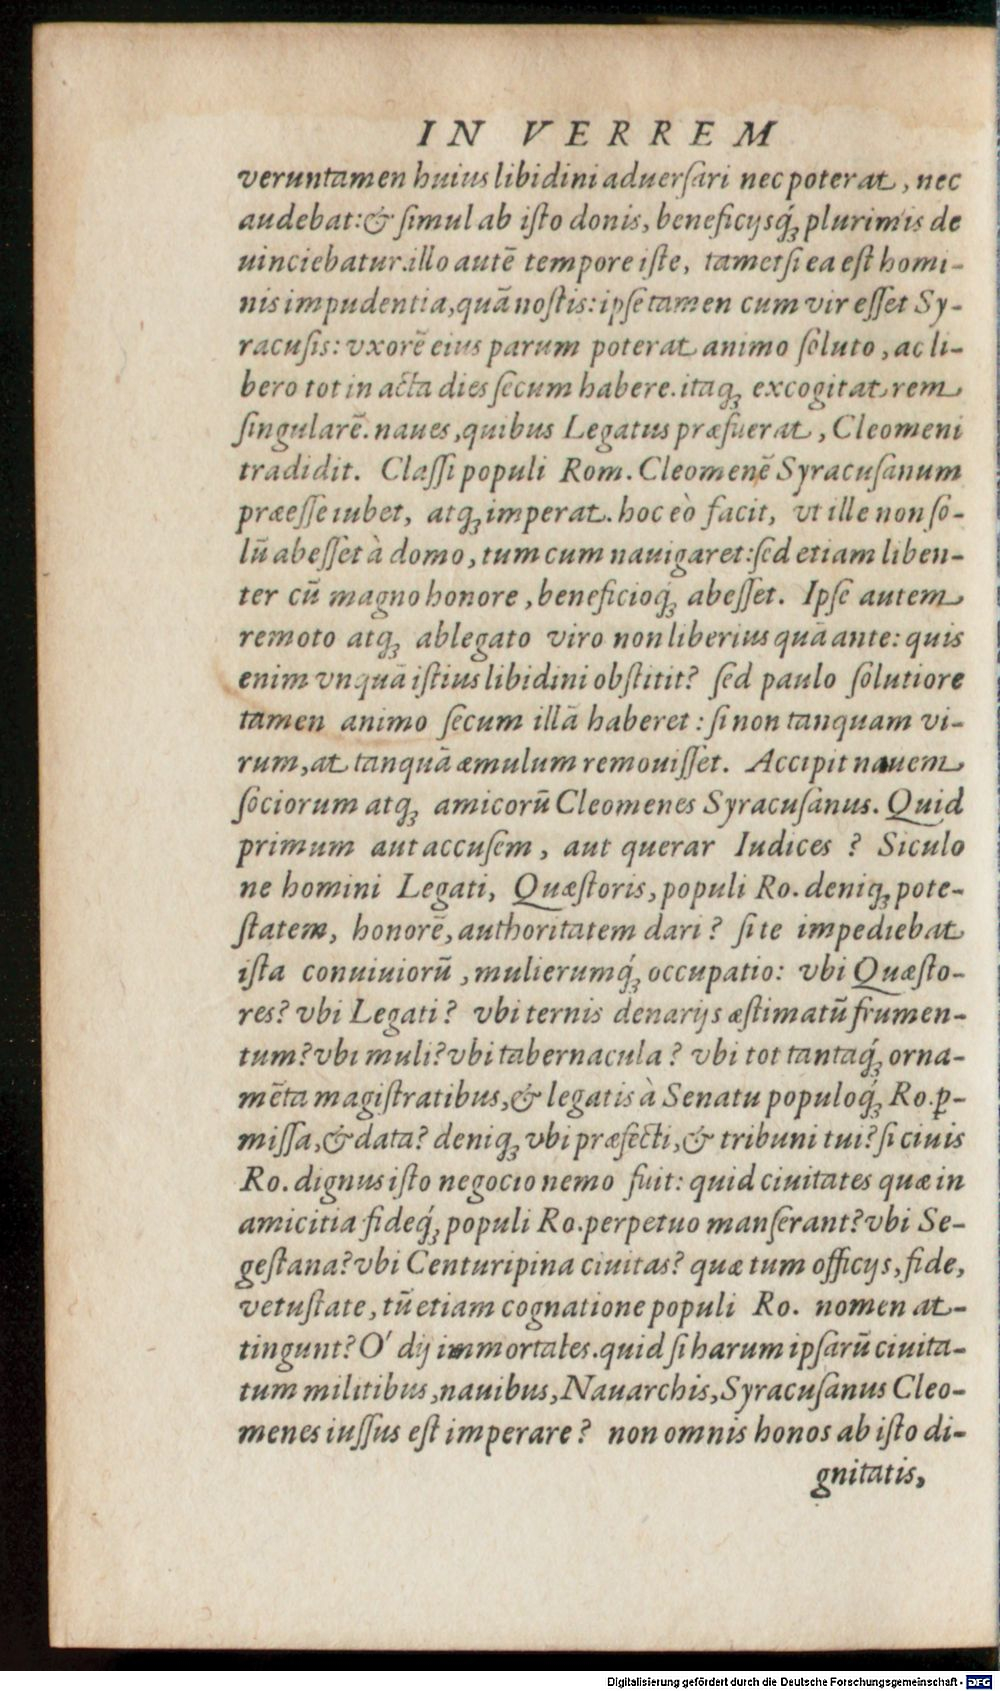 IN VERREM
veruntamen huius libidini aduersari nec poterat, nec
audebat: & simul ab isto donis, beneficijsq́ꝫ plurimis de
uinciebatur. illo autē tempore iste, tametsi ea est homi-
nis impudentia, quā nostis: ipse tamen cum vir esset Sy-
racusis: vxorē eius parum poterat animo soluto, ac li-
bero tot in acta dies secum habere. itaqꝫ excogitat rem
singularē. naues, quibus Legatus præfuerat, Cleomeni
tradidit. Classi populi Rom. Cleomenē Syracusanum
præesse iubet, atqꝫ imperat. hoc eò facit, vt ille non so-
lū abesset à domo, tum cum nauigaret: sed etiam liben-
ter cū magno honore, beneficioq́ꝫ abesset. Ipse autem
remoto atqꝫ ablegato viro non liberius quā ante: quis
enim vnquā istius libidini obstitit? sed paulo solutiore
tamen animo secum illā haberet: si non tanquam vi-
rum, at tanquā æmulum remouisset. Accipit nauem
sociorum atqꝫ amicorū Cleomenes Syracusanus. Quid
primum aut accusem, aut querar Iudices? Siculo
ne homini Legati, Quæstoris, populi Ro. deniqꝫ pote-
statem, honorē, authoritatem dari? si te impediebat
ista conuiuiorū, mulierumq́ꝫ occupatio: vbi Quæsto-
res? vbi Legati? vbi ternis denarijs æstimatū frumen-
tum? vbi muli? vbi tabernacula? vbi tot tantaq́ꝫ orna-
mēta magistratibus, & legatis à Senatu populoq́ꝫ Ro. ꝑ-
missa, & data? deniqꝫ vbi præfecti, & tribuni tui? si ciuis
Ro. dignus isto negocio nemo fuit: quid ciuitates quæ in
amicitia fideq́ꝫ populi Ro. perpetuo manserant? vbi Se-
gestana? vbi Centuripina ciuitas? quæ tum officijs, fide,
vetustate, tū etiam cognatione populi Ro. nomen at-
tingunt? O' dij immortales. quid si harum ipsarū ciuita-
tum militibus, nauibus, Nauarchis, Syracusanus Cleo-
menes iussus est imperare? non omnis honos ab isto di-
gnitatis,
Digitalisierung gefördert durch die Deutsche Forschungsgemeinschaft - DFG